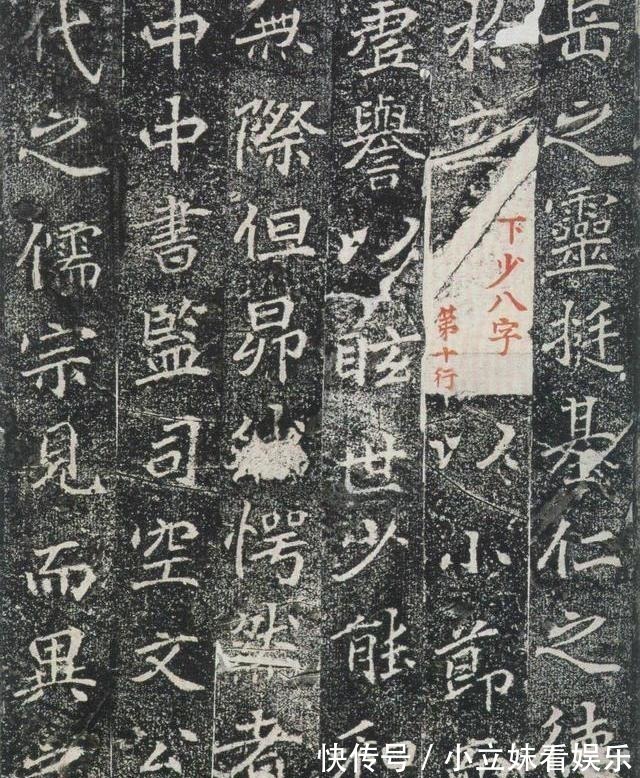 岳之靈挺基仁之德
於
下少八字
第十行
以小節
虛譽以眩世少能
無際但昂愕然者
中中書監司空文公
代之儒宗見而異之
快传号 / 小立妹看娱乐